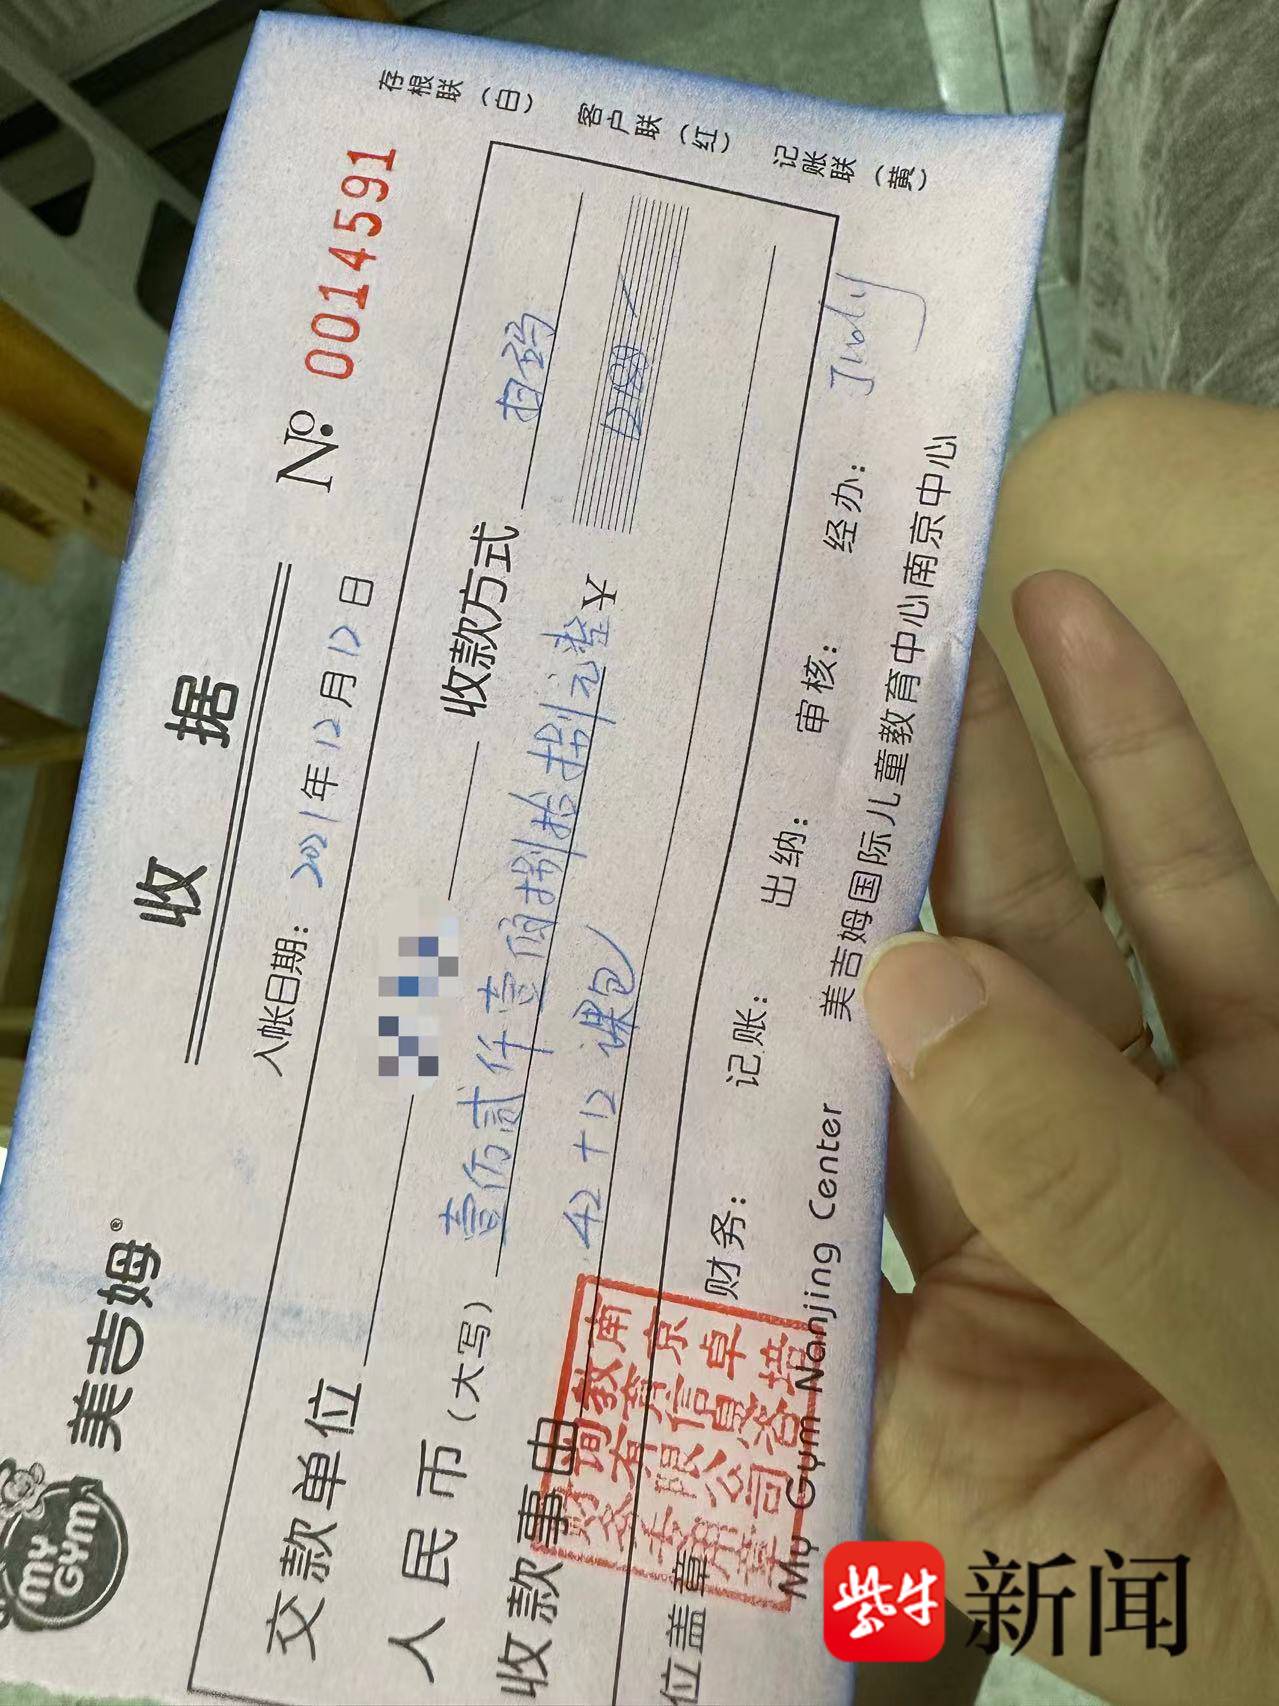 MY GYM 美吉姆®
收 据
№ 0014591
入帐日期：2021年12月12日
存根联（白） 客户联（红） 记账联（黄）
交款单位 收款方式 扫码
人民币（大写） 壹佰贰仟壹佰捌拾捌元整 ¥ 12188
收款事由 42+12 课包
位盖章 财务： 记账： 出纳： 审核： 经办： Judy
My Gym Nanjing Center 美吉姆国际儿童教育中心南京中心
南京卓塔
教育信息咨
询有限公司
财务专用章
紫牛新闻